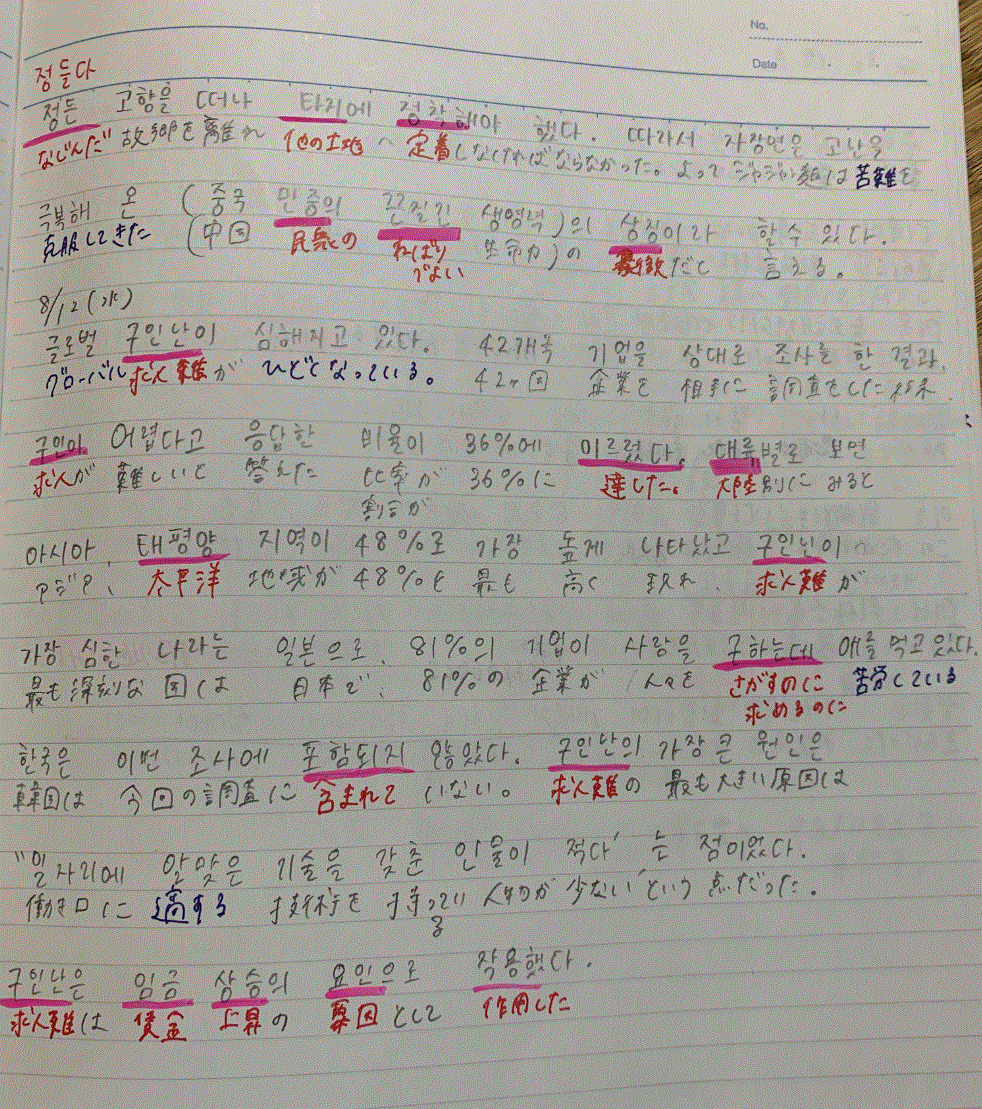 No.
Date
정들다
정든 고향을 떠나 타지에 정착해야 했다. 따라서 자장면은 고난을
なじんだ 故郷を離れ 他の土地へ 定着しなければならなかった。よって ジャジャン麺は苦難を
극복해 온 (중국 민중의 끈질긴 생명력)의 상징이라 할 수 있다.
克服してきた (中国 民衆の ねばり 生命力)の 象徴だと 言える。
づよい
8/12(水)
글로벌 구인난이 심해지고 있다. 42개국 기업을 상대로 조사를 한 결과,
グローバル 求人難が ひどくなっている。 42ヶ国 企業を 相手に 調査をした結果
구인이 어렵다고 응답한 비율이 36%에 이르렀다. 대륙별로 보면
求人が 難しいと 答えた 比率が 36%に 達した。 大陸別に みると
割合が
아시아, 태평양 지역이 48%로 가장 높게 나타났고 구인난이
アジア、 太平洋 地域が 48%も 最も 高く 現れ、 求人難が
가장 심한 나라는 일본으로, 81%의 기업이 사람을 구하는데 애를 먹고 있다.
最も 深刻な 国は 日本で、 81%の 企業が 人々を さがすのに 苦労している
求めるのに
한국은 이번 조사에 포함되지 않았다. 구인난의 가장 큰 원인은
韓国は 今回の調査に 含まれて いない。 求人難の 最も大きい原因は
"일자리에 알맞은 기술을 갖춘 인물이 적다"는 점이었다.
働き口に 適する 技術を 持ってい 人物が 少ない"という 点だった。
る
구인난은 임금 상승의 요인으로 작용했다.
求人難は 賃金 上昇の 要因として 作用した